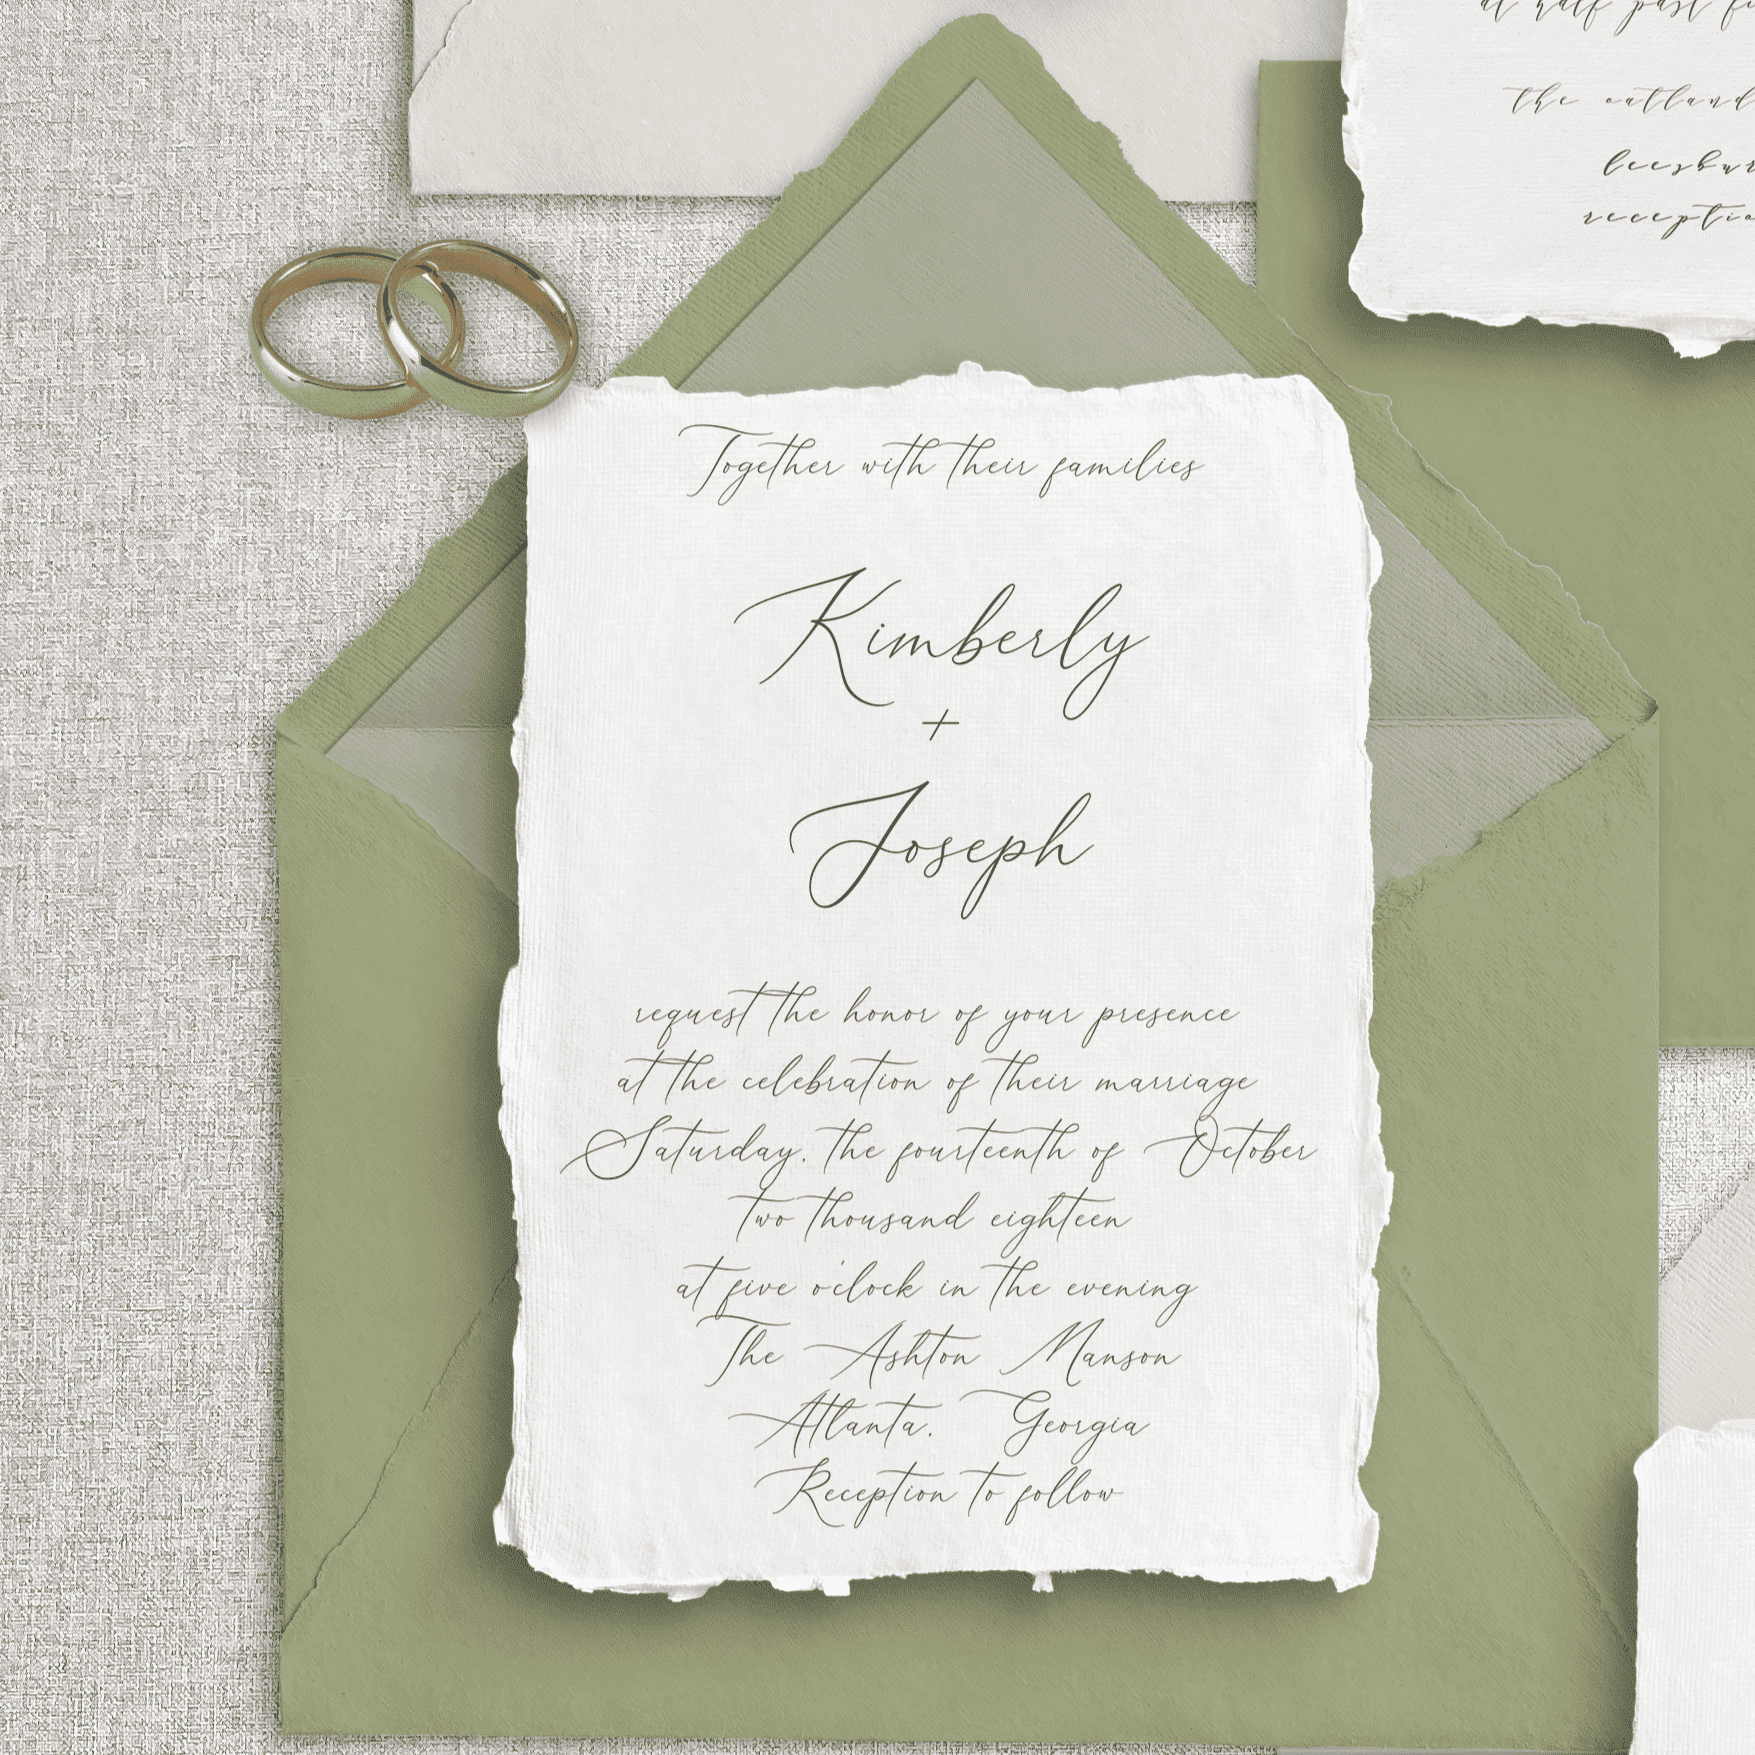 at half past
the oatland
leesbur
reception
Together with their families
Kimberly
+
Joseph
request the honor of your presence
at the celebration of their marriage
Saturday, the fourteenth of October
two thousand eighteen
at five o'clock in the evening
The Ashton Manson
Atlanta, Georgia
Reception to follow